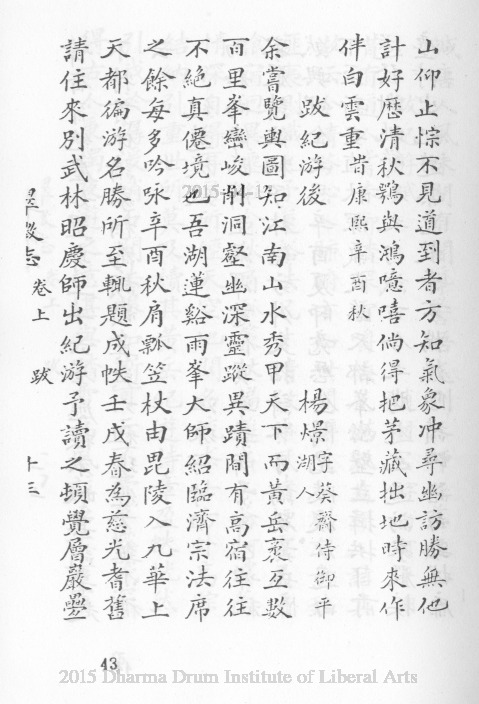 山仰止悰不見道到者方知氣象冲尋幽訪勝無他
計好歷清秋鶚與鴻噫嘻倘得把茅藏拙地時來作
伴白雲重旹康熙辛酉秋
跋紀游後
楊熼字葵齋侍御平湖人
余嘗覽輿圖知江南山水秀甲天下而黃岳袤亙數
百里峯巒峻削洞壑幽深靈蹤異蹟間有高宿往往
不絕真僊境也吾湖蓮谿雨峯大師紹臨濟宗法席
之餘每多吟咏辛酉秋肩瓢笠杖由毘陵入九華上
天都徧游名勝所至輒題成帙壬戌春為慈光耆舊
請住來別武林昭慶師出紀游予讀之頓覺層巖疊
卷上
跋
十三
43
2015 Dharma Drum Institute of Liberal Arts